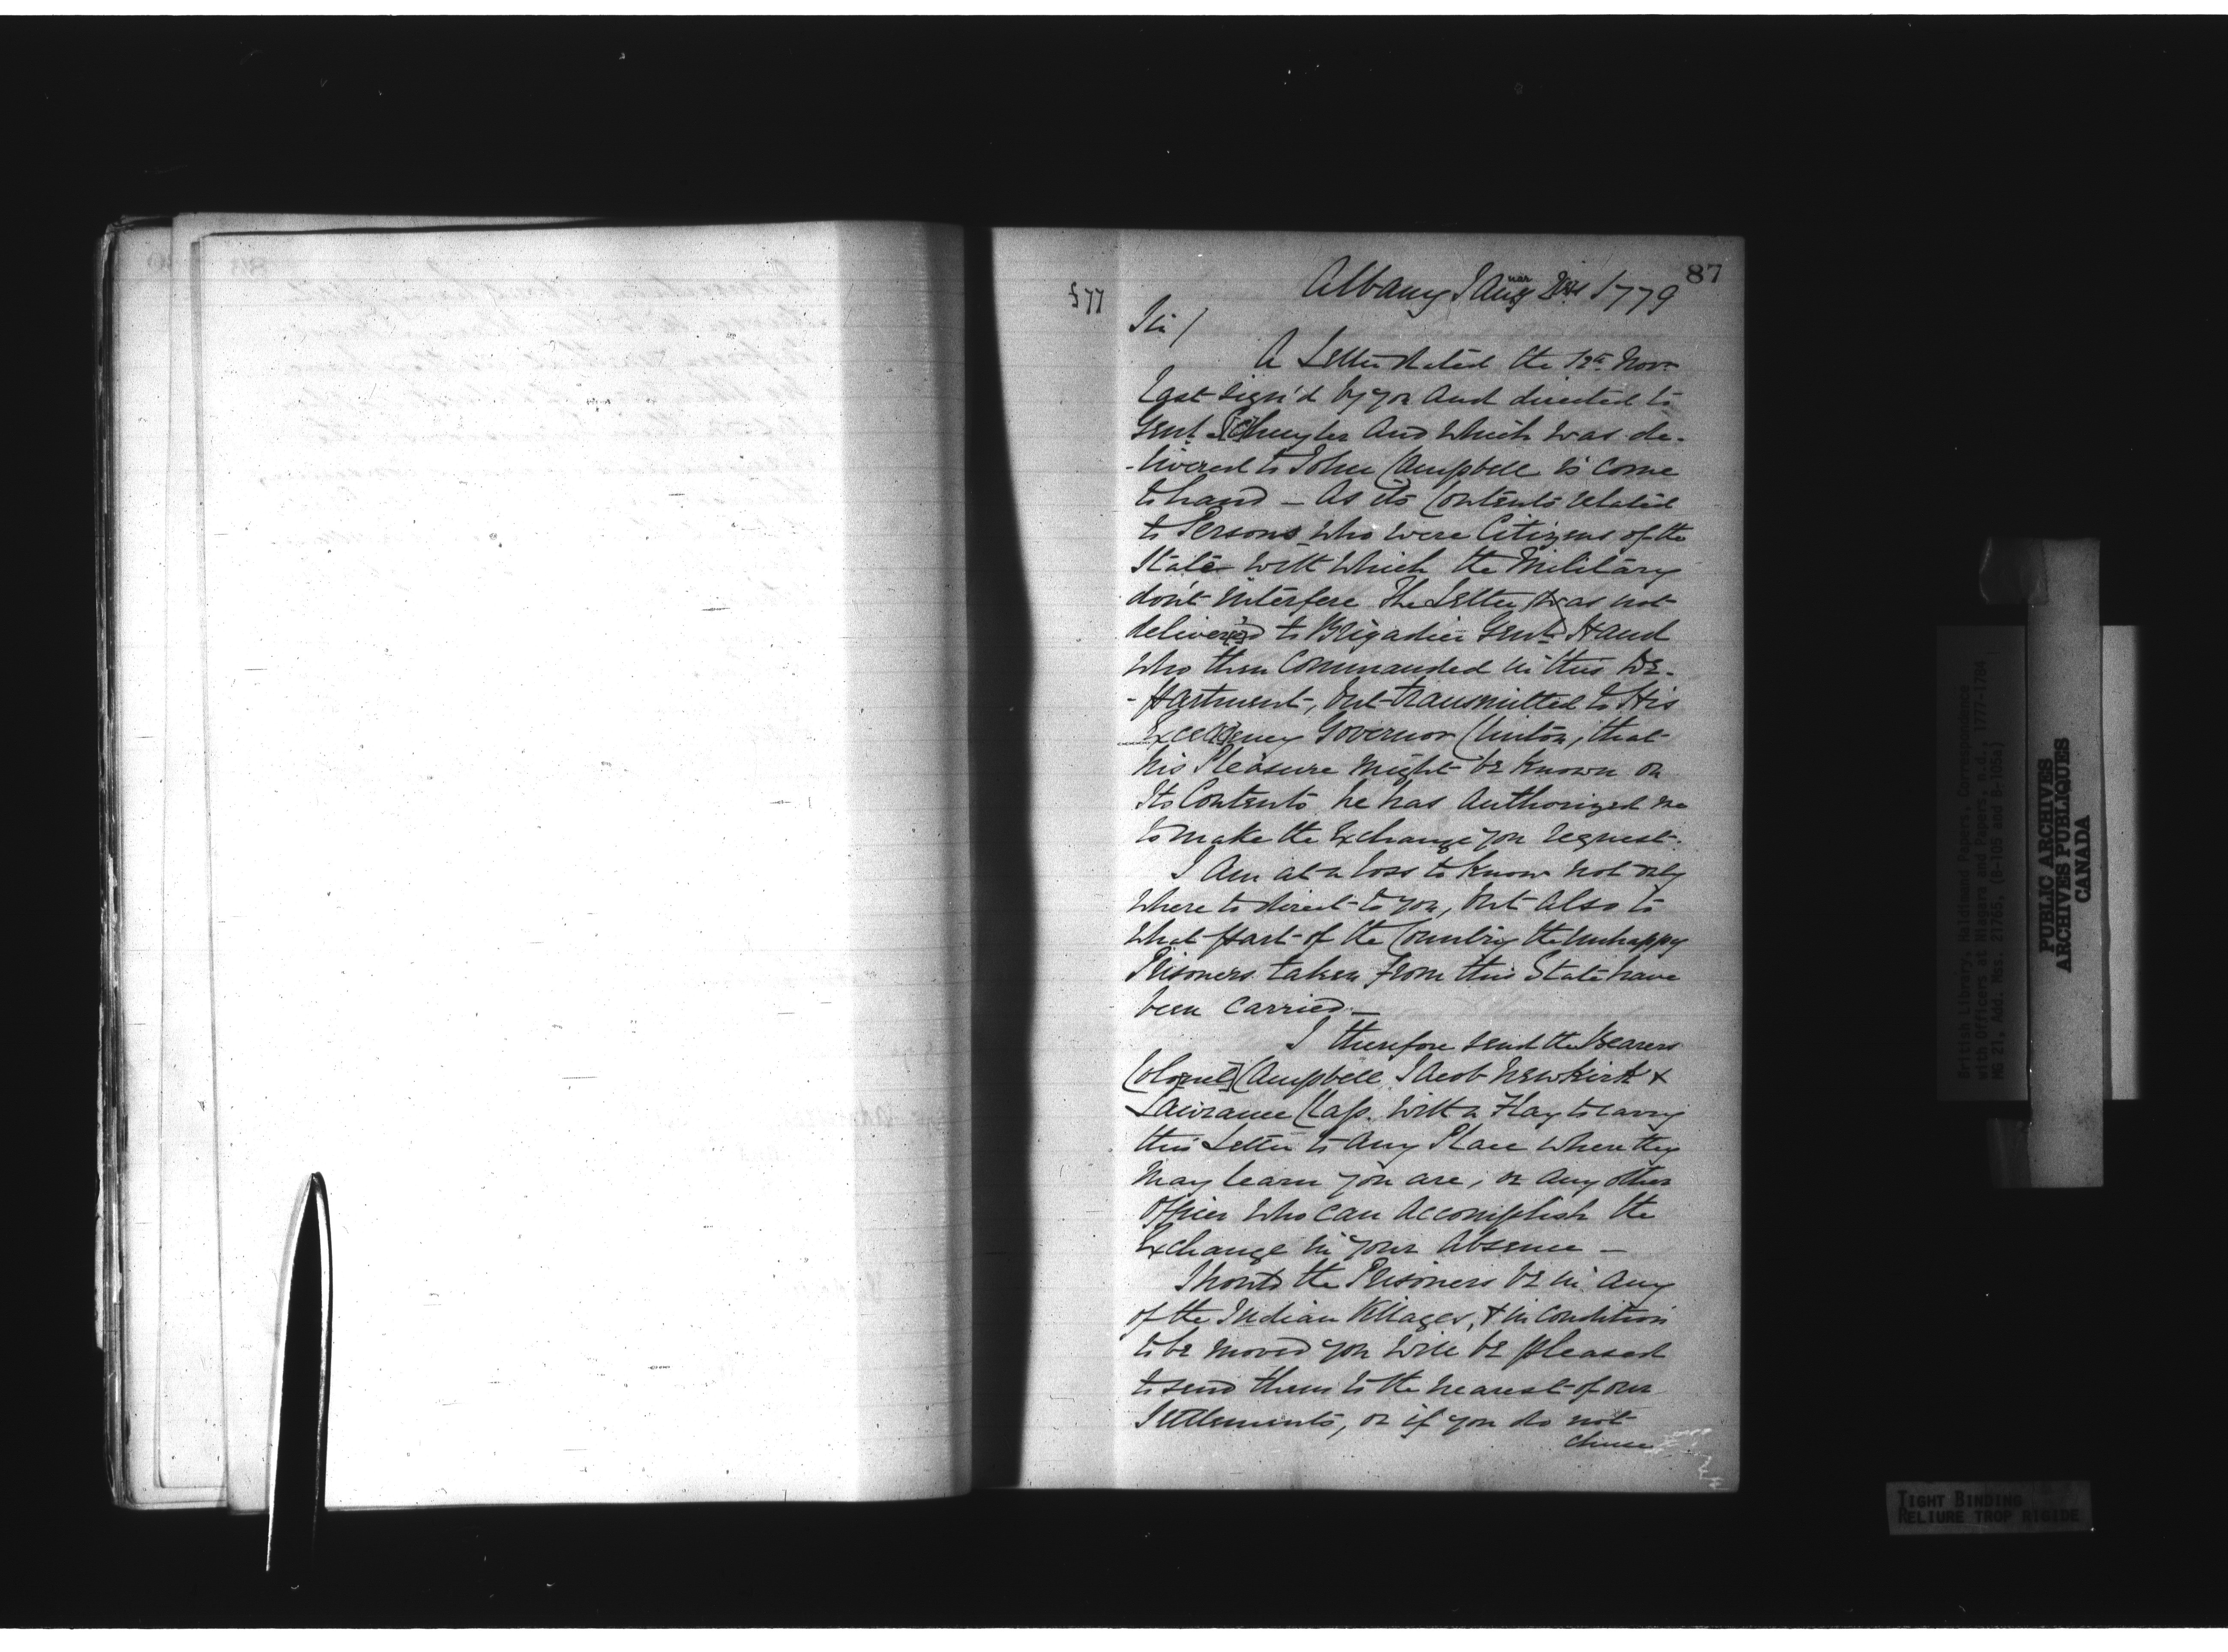 87
Albany January 1779
f 77
Sir /
A Letter dated the 12th Novr
Last sign'd by you and directed to
Genl Schuyler And which was de-
-livered to John Campbell is come
to hand - As its Contents related
to Persons who were Citizens of the
State with which the Military
don't interfere The Letter was not
delivered to Brigadier Genl Hand
who then Commanded in this De-
-partment, but transmitted to His
Excellency Governor Clinton, that
his Pleasure might be known on
Its Contents he has Authorized me
to make the Exchange you request.
I Am at a loss to know not only
where to direct to you, but also to
what part of the Country the unhappy
Prisoners taken from this State have
been carried -
I therefore send the Bearers
Colonel Campbell Jacob Newkirk &
Lawrance Clafs. with a Flag to carry
this Letter to Any Place where they
may learn you are, or any other
Officer who can Accomplish the
Exchange in your Absence -
Should the Prisoners be in Any
of the Indian Villages, & in condition
to be moved you will be pleased
to send them to the nearest of our
Settlements, or if you do not
chuse
British Library, Haldimand Papers, Correspondence
with Officers at Niagara and Papers, n.d., 1777-1784,
MG 21, Add. Mss. 21765, (B-105 and B-105a)
PUBLIC ARCHIVES
ARCHIVES PUBLIQUES
CANADA
TIGHT BINDING
RELIURE TROP RIGIDE